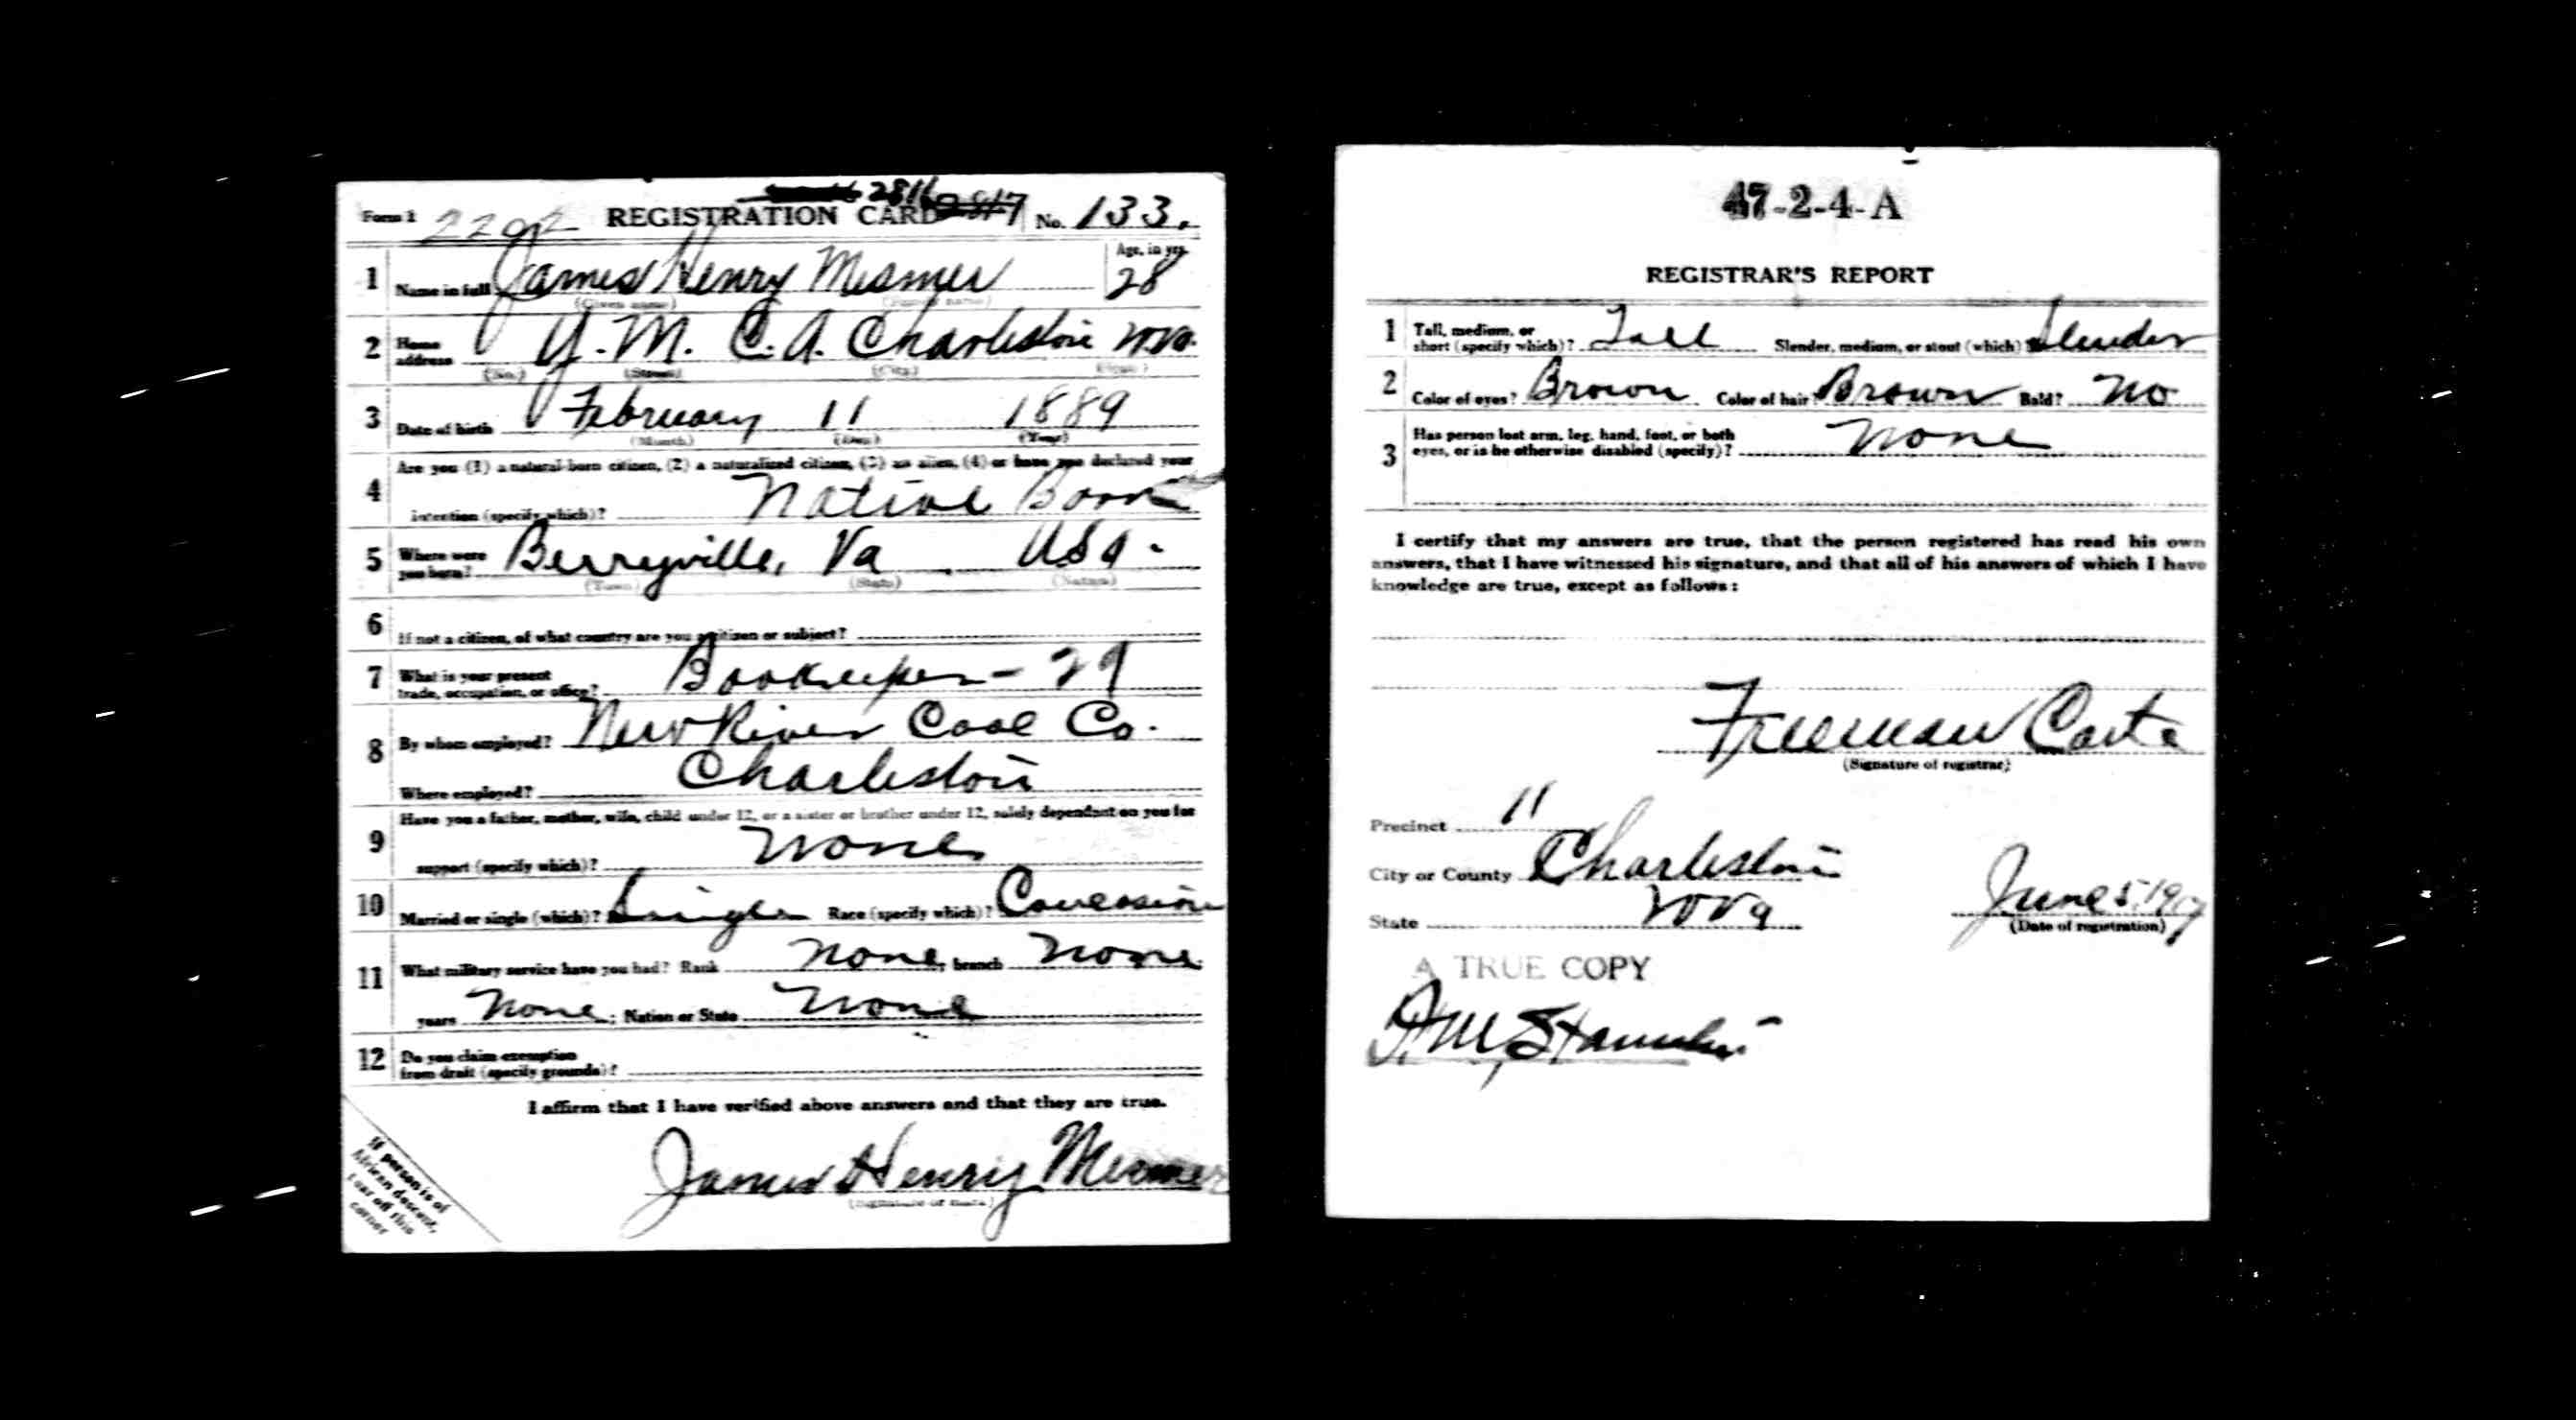 2816
Form 1 REGISTRATION CARD 2817 No. 133.
1 Name in full James Henry Mesmer Age, in yrs. 28
(Given name) (Family name)
2 Home address Y. M. C. A. Charleston WVa.
(No.) (Street) (City) (State)
3 Date of birth February 11 1889
(Month) (Day) (Year)
Are you (1) a natural-born citizen, (2) a naturalized citizen, (3) an alien, (4) or have you declared your
4 intention (specify which)? Native Born
5 Where were you born? Berryville, Va USA.
(Town) (State) (Nation)
6 If not a citizen, of what country are you a citizen or subject?
7 What is your present trade, occupation, or office? Bookeeper - 29
8 By whom employed? New River Coal Co.
Where employed? Charleston
Have you a father, mother, wife, child under 12, or a sister or brother under 12, solely dependent on you for
9 support (specify which)? None
10 Married or single (which)? Single Race (specify which)? Caucasion
11 What military service have you had? Rank None; branch None
years None; Nation or State None
12 Do you claim exemption from draft (specify grounds)?
I affirm that I have verified above answers and that they are true.
James Henry Mesmer
(Signature or mark)
If person is of
African descent,
tear off this
corner
47-2-4-A
REGISTRAR'S REPORT
1 Tall, medium, or short (specify which)? Tall Slender, medium, or stout (which)? Slender
2 Color of eyes? Brown Color of hair? Brown Bald? No
3 Has person lost arm, leg, hand, foot, or both eyes, or is he otherwise disabled (specify)? None
I certify that my answers are true, that the person registered has read his own
answers, that I have witnessed his signature, and that all of his answers of which I have
knowledge are true, except as follows:
Freeman Carte
(Signature of registrar)
Precinct 11
City or County Charleston
State WVa June 5, 1917
(Date of registration)
A TRUE COPY